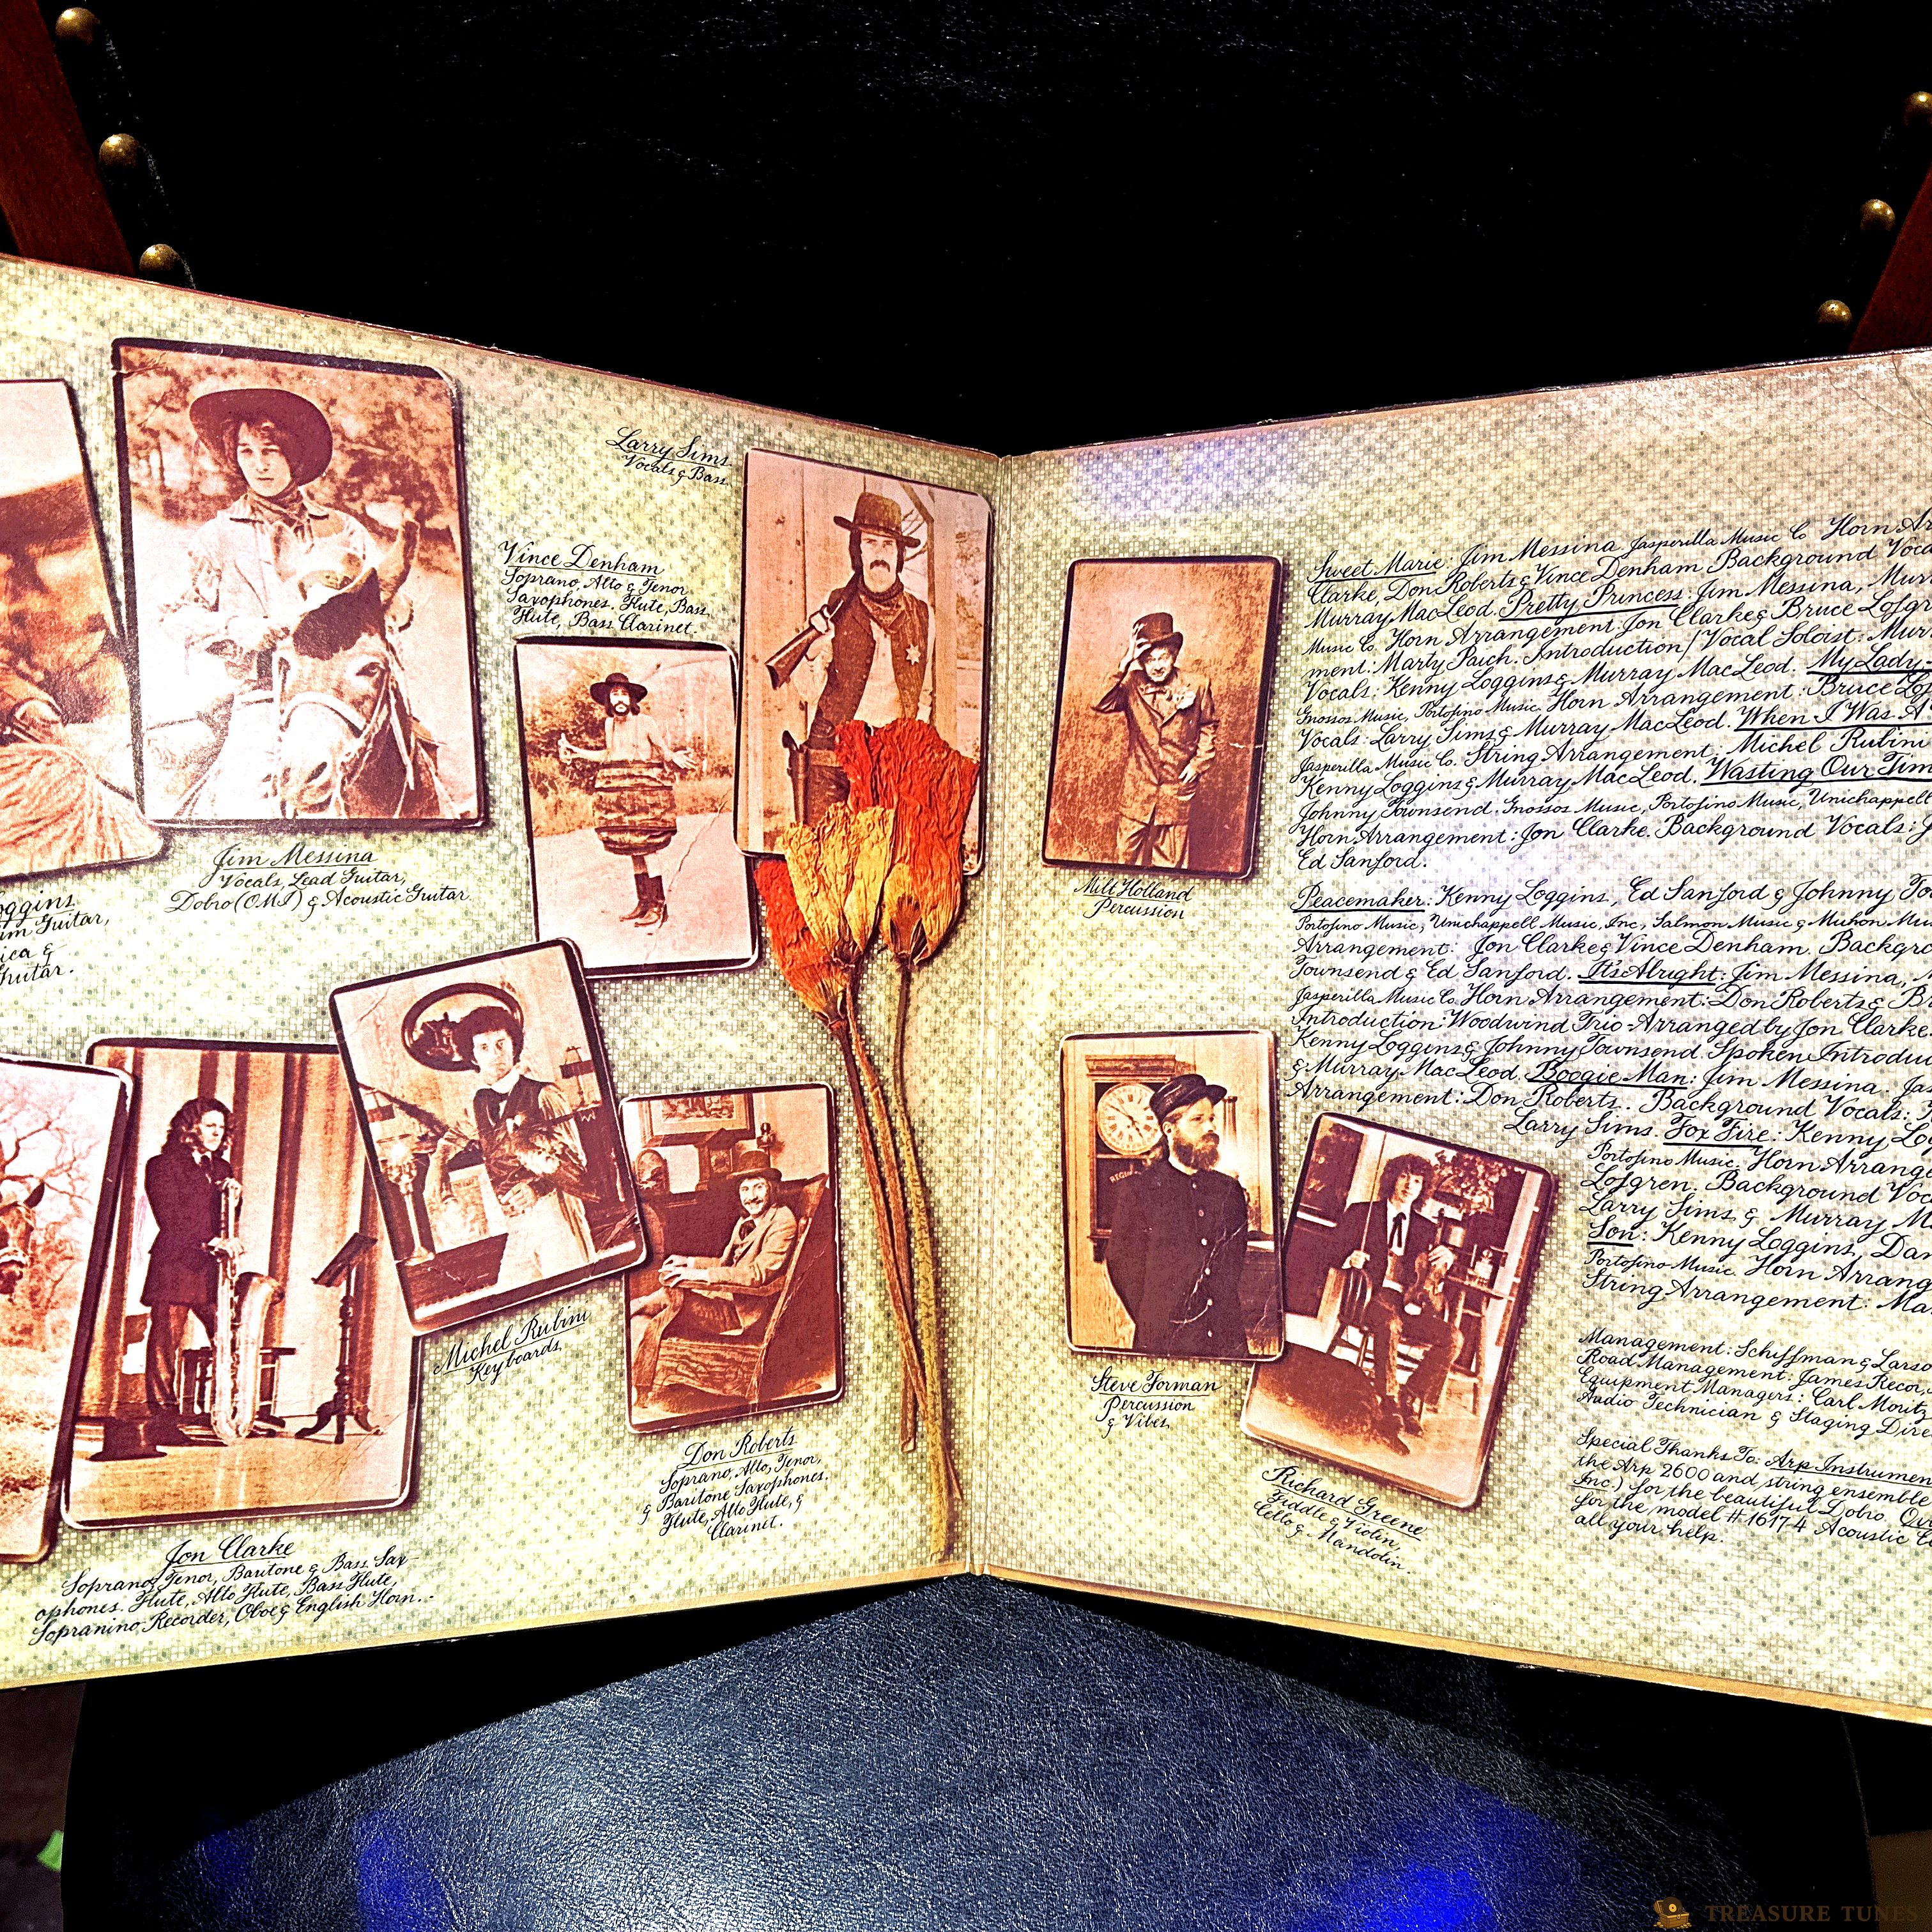 Larry Sims
Vocals & Bass
Vince Denham
Soprano, Alto & Tenor
Saxophones, Flute, Bass
Flute, Bass Clarinet.
Jim Messina
Vocals, Lead Guitar,
Dobro (O.M.I.) & Acoustic Guitar.
oggins
im Guitar,
ica &
Guitar.
Michel Rubini
Keyboards
Don Roberts
Soprano, Alto, Tenor,
& Baritone Saxophones.
Flute, Alto Flute, &
Clarinet.
Jon Clarke
Soprano, Tenor, Baritone & Bass Sax-
ophones. Flute, Alto Flute, Bass Flute,
Sopranino Recorder, Oboe & English Horn.
Milt Holland
Percussion
Steve Forman
Percussion
& Vibes
Richard Greene
Fiddle & Violin,
Cello & Mandolin.
REGU
Sweet Marie: Jim Messina. Jasperilla Music Co. Horn Ar
Clarke, Don Roberts & Vince Denham. Background Voca
Murray MacLeod. Pretty Princess: Jim Messina, Murr
Music Co. Horn Arrangement: Jon Clarke & Bruce Lofgr
ment: Marty Paich. Introduction/Vocal Soloist: Murr
Vocals: Kenny Loggins & Murray MacLeod. My Lady,
Gnossos Music, Portofino Music. Horn Arrangement: Bruce Lof
Vocals: Larry Sims & Murray MacLeod. When I Was A
Jasperilla Music Co. String Arrangement: Michel Rubini
Kenny Loggins & Murray MacLeod. Wasting Our Tim
Johnny Townsend. Gnossos Music, Portofino Music, Unichappell
Horn Arrangement: Jon Clarke. Background Vocals: J
Ed Sanford.
Peacemaker: Kenny Loggins, Ed Sanford & Johnny To
Portofino Music, Unichappell Music, Inc, Salmon Music & Muhon Mu
Arrangement: Jon Clarke & Vince Denham. Backgr
Townsend & Ed Sanford. It's Alright: Jim Messina,
Jasperilla Music Co. Horn Arrangement: Don Roberts & Br
Introduction: Woodwind Trio-Arranged by Jon Clarke.
Kenny Loggins & Johnny Townsend. Spoken Introduc
& Murray MacLeod. Boogie Man: Jim Messina. Jas
Arrangement: Don Roberts. Background Vocals:
Larry Sims. Fox Fire: Kenny Lo
Portofino Music. Horn Arrange
Lofgren. Background Voc
Larry Sims & Murray M
Son: Kenny Loggins, Dan
Portofino Music. Horn Arrang
String Arrangement: Ma
Management: Schiffman & Larso
Road Management: James Recor,
Equipment Managers: Carl Moritz,
Audio Technician & Staging Dire
Special Thanks To: Arp Instrumen
the Arp 2600 and string ensemble
Inc.) for the beautiful Dobro.
for the model #1617-4 Acoustic
all your help.
TREASURE TUNES